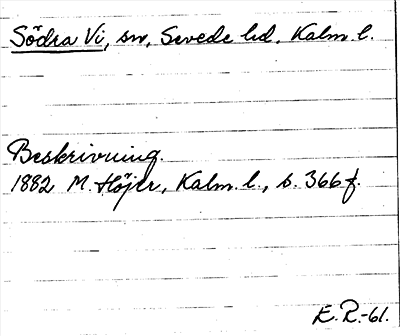 Södra Vi, sn, Sevede hd, Kalm. l.
Beskrivning.
1882 M. Höjer, Kalm. l., s. 366 f.
E. R. -61.